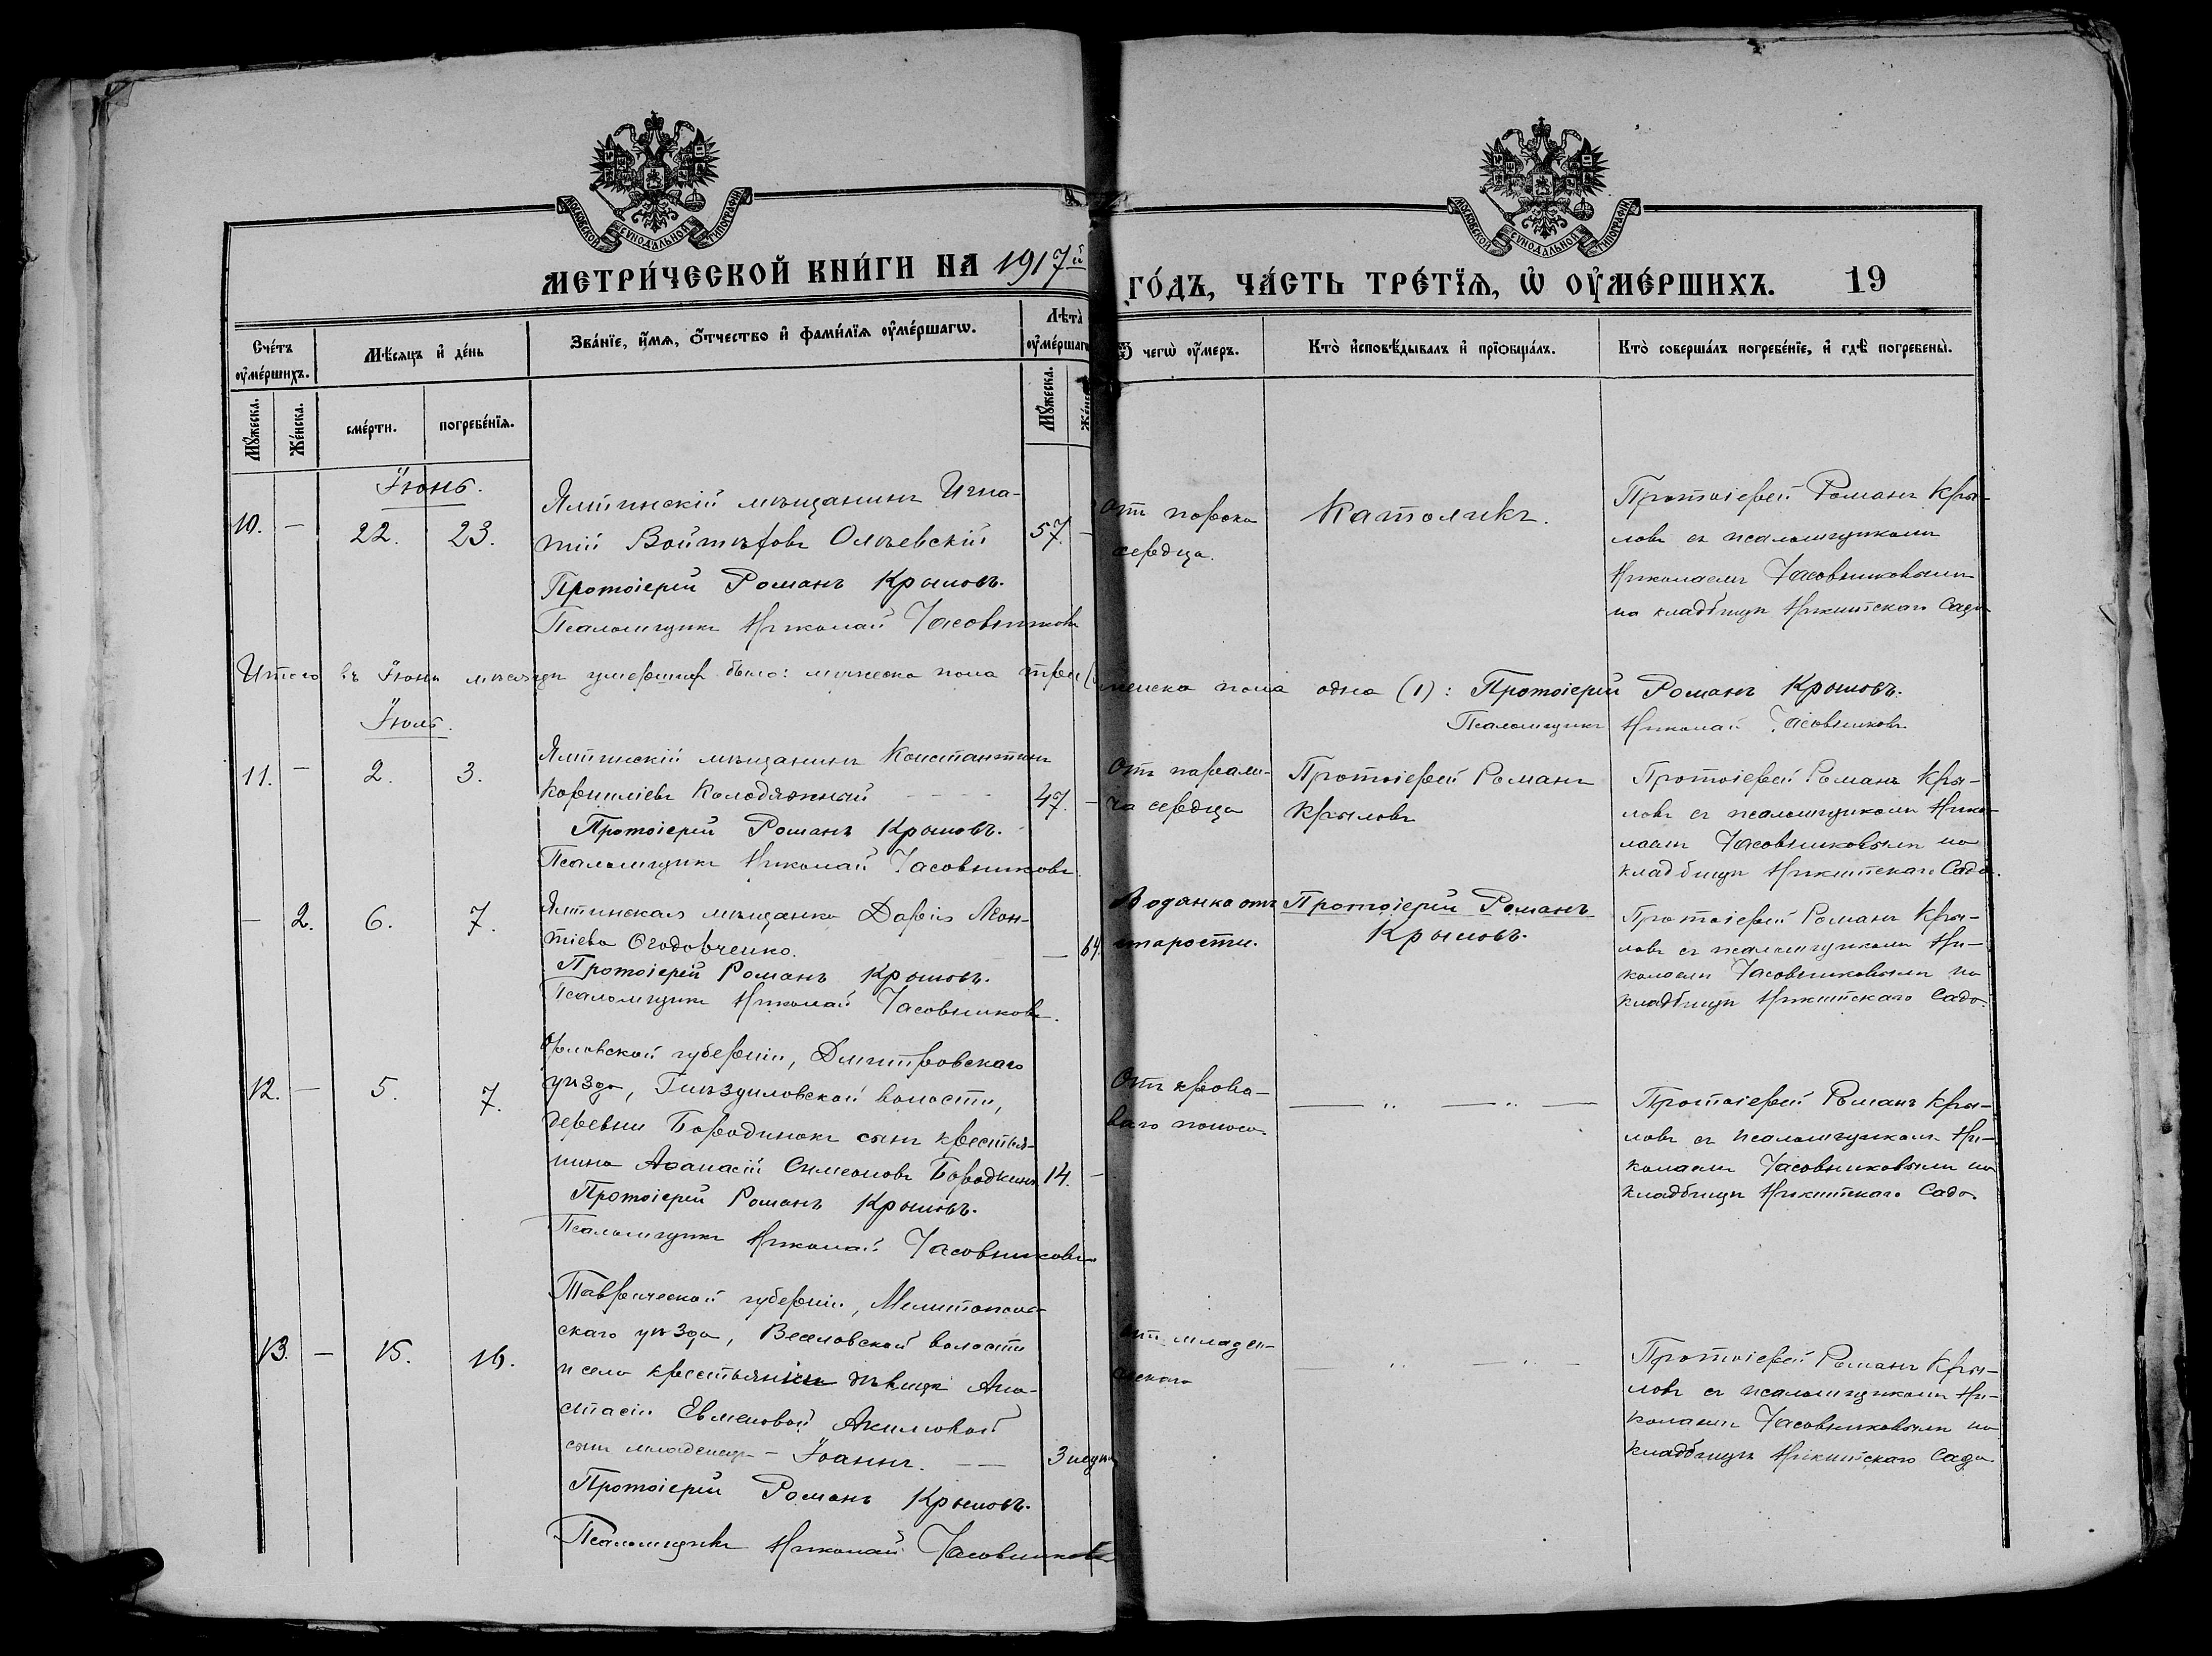 МОСКОВСКОЙ СѴНОДАЛЬНОЙ ТИПОГРАФІИ
МОСКОВСКОЙ СѴНОДАЛЬНОЙ ТИПОГРАФІИ
МЕТРИ́ЧЕСКОЙ КНИ́ГИ НА 1917й
ГО́ДЪ, ЧА́СТЬ ТРЕ́ТЇѦ, Ѡ҆ ОУ҆МЕ́РШИХЪ. 19
Сче́тъ оу҆ме́ршихъ.
Мѣ́сѧцъ и҆ де́нь
Зва́нїе, и҆́мѧ, ѻ҆́тчество и҆ фами́лїѧ оу҆ме́ршагѡ.
Лѣта̀ оу҆ме́ршагѡ
Ѿ чегѡ̀ оу҆́меръ.
Кто̀ и҆сповѣ́дывалъ и҆ прїѻбща́лъ.
Кто̀ соверша́лъ погребе́нїе, и҆ гдѣ̀ погребены̀.
Мꙋ́жеска.
Же́нска.
сме́рти.
погребе́нїѧ.
Мꙋ́жеска.
Іюнь.
10. — 22. 23.
Ялтинскій мѣщанинъ Игна-
тій Войтѣховъ Олѣевскій 57. —
Протоіерей Романъ Крыловъ.
Псаломщикъ Николай Часовниковъ
отъ порока
сердца.
Католикъ.
Протоіерей Романъ Кры-
ловъ съ псаломщикомъ
Николаемъ Часовниковымъ
на кладбищѣ Никитскаго Сада
Итого въ Іюнѣ мѣсяцѣ умершихъ было: мужеска пола три
женска пола одна (1): Протоіерей Романъ Крыловъ.
Псаломщикъ Николай Часовниковъ
Іюль.
11. — 2. 3.
Ялтинскій мѣщанинъ Константинъ
Корниліевъ Колодяжный 47. —
Протоіерей Романъ Крыловъ.
Псаломщикъ Николай Часовниковъ
Отъ парали-
ча сердца
Протоіерей Романъ
Крыловъ
Протоіерей Романъ Кры-
ловъ съ псаломщикомъ Нико-
лаемъ Часовниковымъ на
кладбищѣ Никитскаго Сада.
— 2. 6. 7.
Ялтинская мѣщанка Дарія Леон-
тіева Огодовченко. — 64.
Протоіерей Романъ Крыловъ.
Псаломщикъ Николай Часовниковъ.
Водянка отъ
старости.
Протоіерей Романъ
Крыловъ.
Протоіерей Романъ Кры-
ловъ съ псаломщикомъ Ни-
колаемъ Часовниковымъ на
кладбищѣ Никитскаго Сада.
12. — 5. 7.
Орловской губерніи, Дмитровскаго
уѣзда, Гнѣздиловской волости,
деревни Бородинокъ сынъ крестья-
нина Аѳанасій Симеоновъ Бородкинъ 14. —
Протоіерей Романъ Крыловъ.
Псаломщикъ Николай Часовниковъ
Отъ крова-
ваго поноса.
— „ — „ —
Протоіерей Романъ Кры-
ловъ съ псаломщикомъ Ни-
колаемъ Часовниковымъ на
кладбищѣ Никитскаго Сада.
13. — 15. 16.
Таврической губерніи, Мелитополь-
скаго уѣзда, Веселовской волости
и села крестьянки дѣвицы Ана-
стасіи Евменовой Акимовой
сынъ младенецъ — Іоаннъ. — 3 недѣли
Протоіерей Романъ Крыловъ.
Псаломщикъ Николай Часовниковъ
отъ младен-
ческаго
— „ — „ —
Протоіерей Романъ Кры-
ловъ съ псаломщикомъ Ни-
колаемъ Часовниковымъ на
кладбищѣ Никитскаго Сада